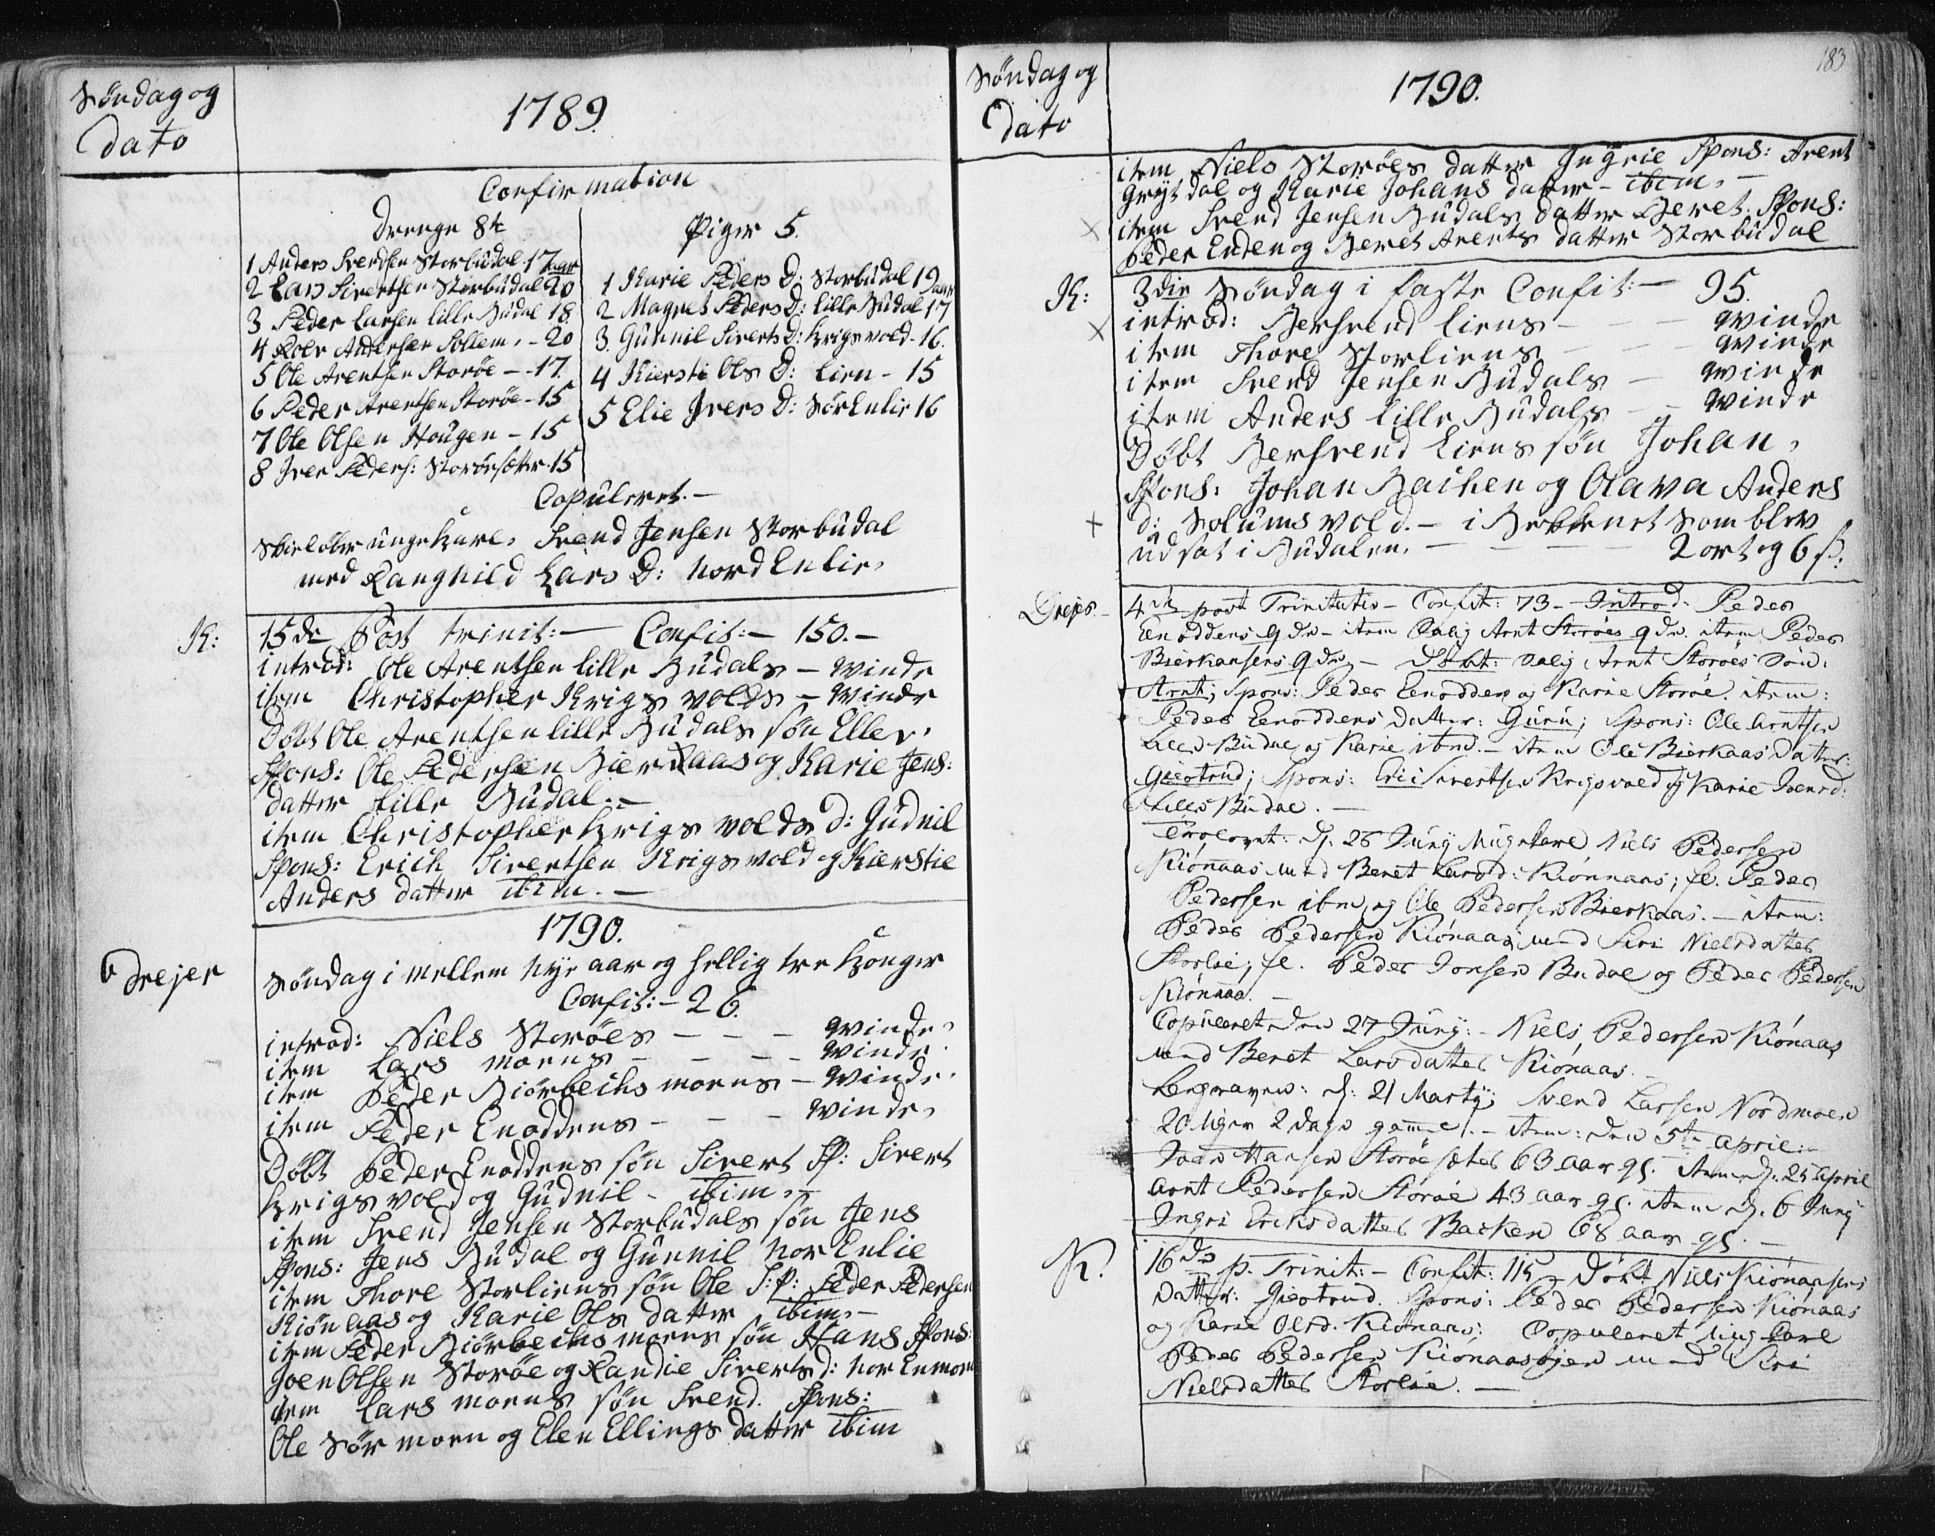 Søndag og
Dato
1789.
Confirmation
Drenge 8te
1 Anders Svendsen Storbudal - 17 aar
2 Lars Sivertsen Storbudal 20
3 Peder Larsen lille Budal 18
4 Rolv Andersen Sollem, - 20
5 Ole Arentsen Storøe - 17
6 Peder Arentsen Storøe - 15
7 Ole Olsen Hougen - 15
8 Iver Peders: Storøesætter 15
Piger 5.
1 Karie Peders D: Storbudal 19 aar
2 Magret Peders D: lille Budal 17
3. Gunnil Siverts D: Krigsvold - 16.
4 Kiersti Ols D: Lien - 15
5 Elie Ivers D: SørEnlie 16
Copuleret. -
Skieløber unge Karl, Svend Jensen Storbudal
med Rangnild Lars D: NordEnlie,
K: 15de Post trinit: - Confit: - 150. -
introd: Ole Arentsen lille Budals - Qvinde
item Christopher Krigsvolds - Qvinde
Døbt Ole Arentsen lille Budals søn Eller,
Spons: Ole Pedersen Bierkaas og Karie Jens:
datter lille Budal. -
item Christopher Krigsvolds D: Gudnil
Spons: Erich Sivertsen Krigsvold og Kierstie
Anders datter ibim. -
1790.
Drejer
Søndag i mellem Nye aar og hellig tre Konger
Confit: - 26.
introd: Niels Storøes - - - Qvinde,
item Lars moens - - - - Qvinde.
item Peder Biørbechs moens - Qvinde.
item Peder Enoddens - - - Qvinde,
Døbt Peder Enoddens søn Sivert Sp: Sivert
Krigsvold og Gudnil - ibim, -
item Svend Jensen Storbudals søn Jens
Spons: Jens Budal og Gunnil NorEnlie
item Thore Storliens søn Ole S:p: Peder Pedersen
Kiønaas og Karie Ols datter ibim, -
item Peder Biørbechs moens søn Hans Spons:
Joen Olsen Storøe og Randie Siverts d: nor Enmoen
item Lars moens søn Svend. Spons:
Ole Sør moen og Elen Ellings datter ibim
Søndag og
Dato
1790.
183
item Niels Storøes datter Ingrie Spons: Arent
Grytdal og Karie Johans datter - ibim, -
item Svend Jensen Budals datter Beret. Spons:
Peder Enden og Beret Arents datter Storbudal
K: 3die Søndag i faste Confit: - 95.
introd: Bersvend Liens - - - Qvinde
item Thore Storliens - - - Qvinde
item Svend Jensen Budals - Qvinde
item Anders lille Budals - - Qvinde
Døbt Bersvend Liens søn Johan,
Spons: Johan Bachen og Olava Anders
d: Solumsvold. - i Bekkenet som blev
udsat i Budalen. - - - - 2 ort og 6 s.
Drejer - 4de post Trinitatis - Confit: 73 - Introd: Peder
Enoddens qde - item Salig Arnt Storøes qde. item Peder
Bierkaasens qde, - Døbt: salig Arnt Storøes Søn:
Arnt; Spons: Peder Eenodden og Karie Storøe. item:
Peder Eenoddens Datter: Guru; Spons: Ole Arntsen
Lille Budal og Karie ibm. - item Ole Bierkaas Datter:
Giertrud; Spons: Eric Sivertsen Krigsvold og Karie Joensd:
Lille Budal. -
Trolovet: d: 26 Juny Ungkarl Niels Pedersen
Kiønaas med Beret Larsd: Kiønnaas; fl: Peder
Pedersen ibm, og Ole Pedersen Bierkaas. - item:
Peder Pedersen Kiønaas med Siri Nielsdatter
Storlie; fl. Peder Jonsen Budal og Peder Pedersen
Kiønnaa. -
Copuleret den 27 Juny: - Niels Pedersen Kiønaas
med Beret Larsdatter Kiønaas. -
Begraven: d: 21 Marty; Svend Larsen Nordmoen
20 uger 2 dage gamel. - item: den 5te April: -
Joen Hansen Storøesæter 63 aar gl. item d. 25 April
Arnt Pedersen Storøe 43 aar gl. item d. 6 Juny
Ingri Eriksdatter Backen 68 aar gl. -
K. 16de p. Trinit: - Confit: 115 - Døbt Niels Kiønaasens
Datter: Giertrud. Spons: Peder Pedersen Kiønaas
og Karie Olesd. Kiønaas: Copuleret Ung Karl
Peder Pedersen Kiønaasøjen med Siri
Nielsdatter Storlie. -